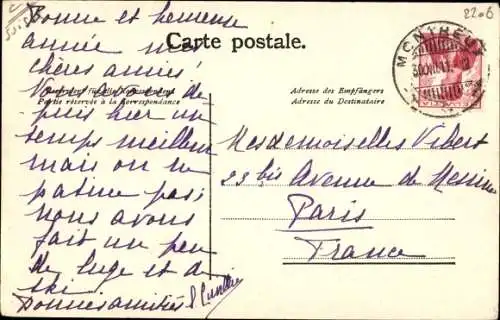 2206
Carte postale.
MONTREUX
Bonne et heureuse
année mes
chères amies
Vous avez de
puis hier un
temps meilleur
mais on ne
patine pas;
nous avons
fait un peu
de luge et de
ski
Bonnes amitiés
Partie réservée à la Correspondance
Adresse des Empfängers
Adresse du Destinataire
Mesdemoiselles Vibert
23 bis Avenue de Messine
Paris
France